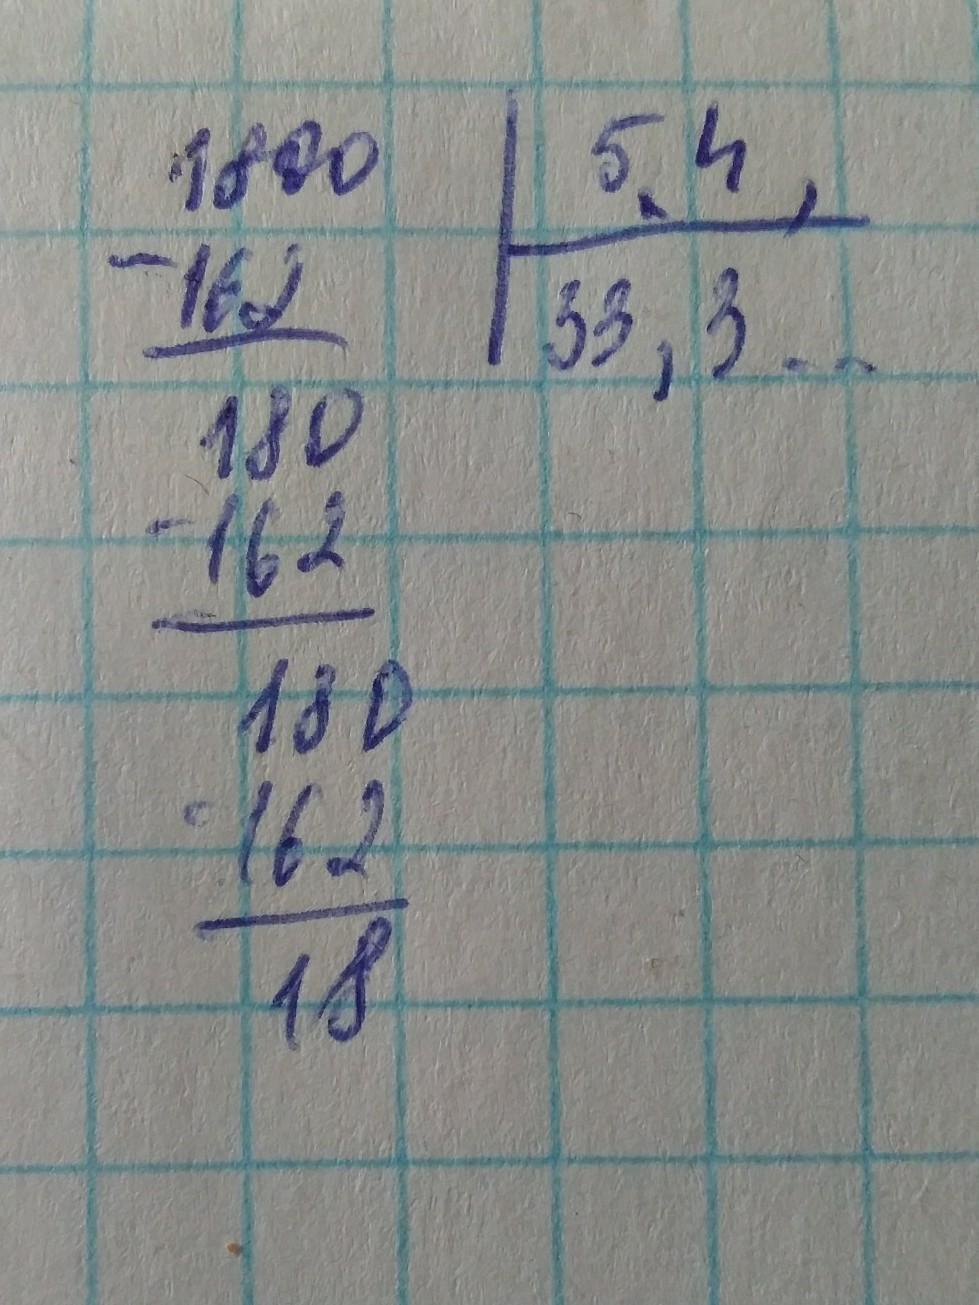 1800 5,4,
-162 33,3...
180
-162
180
-162
18